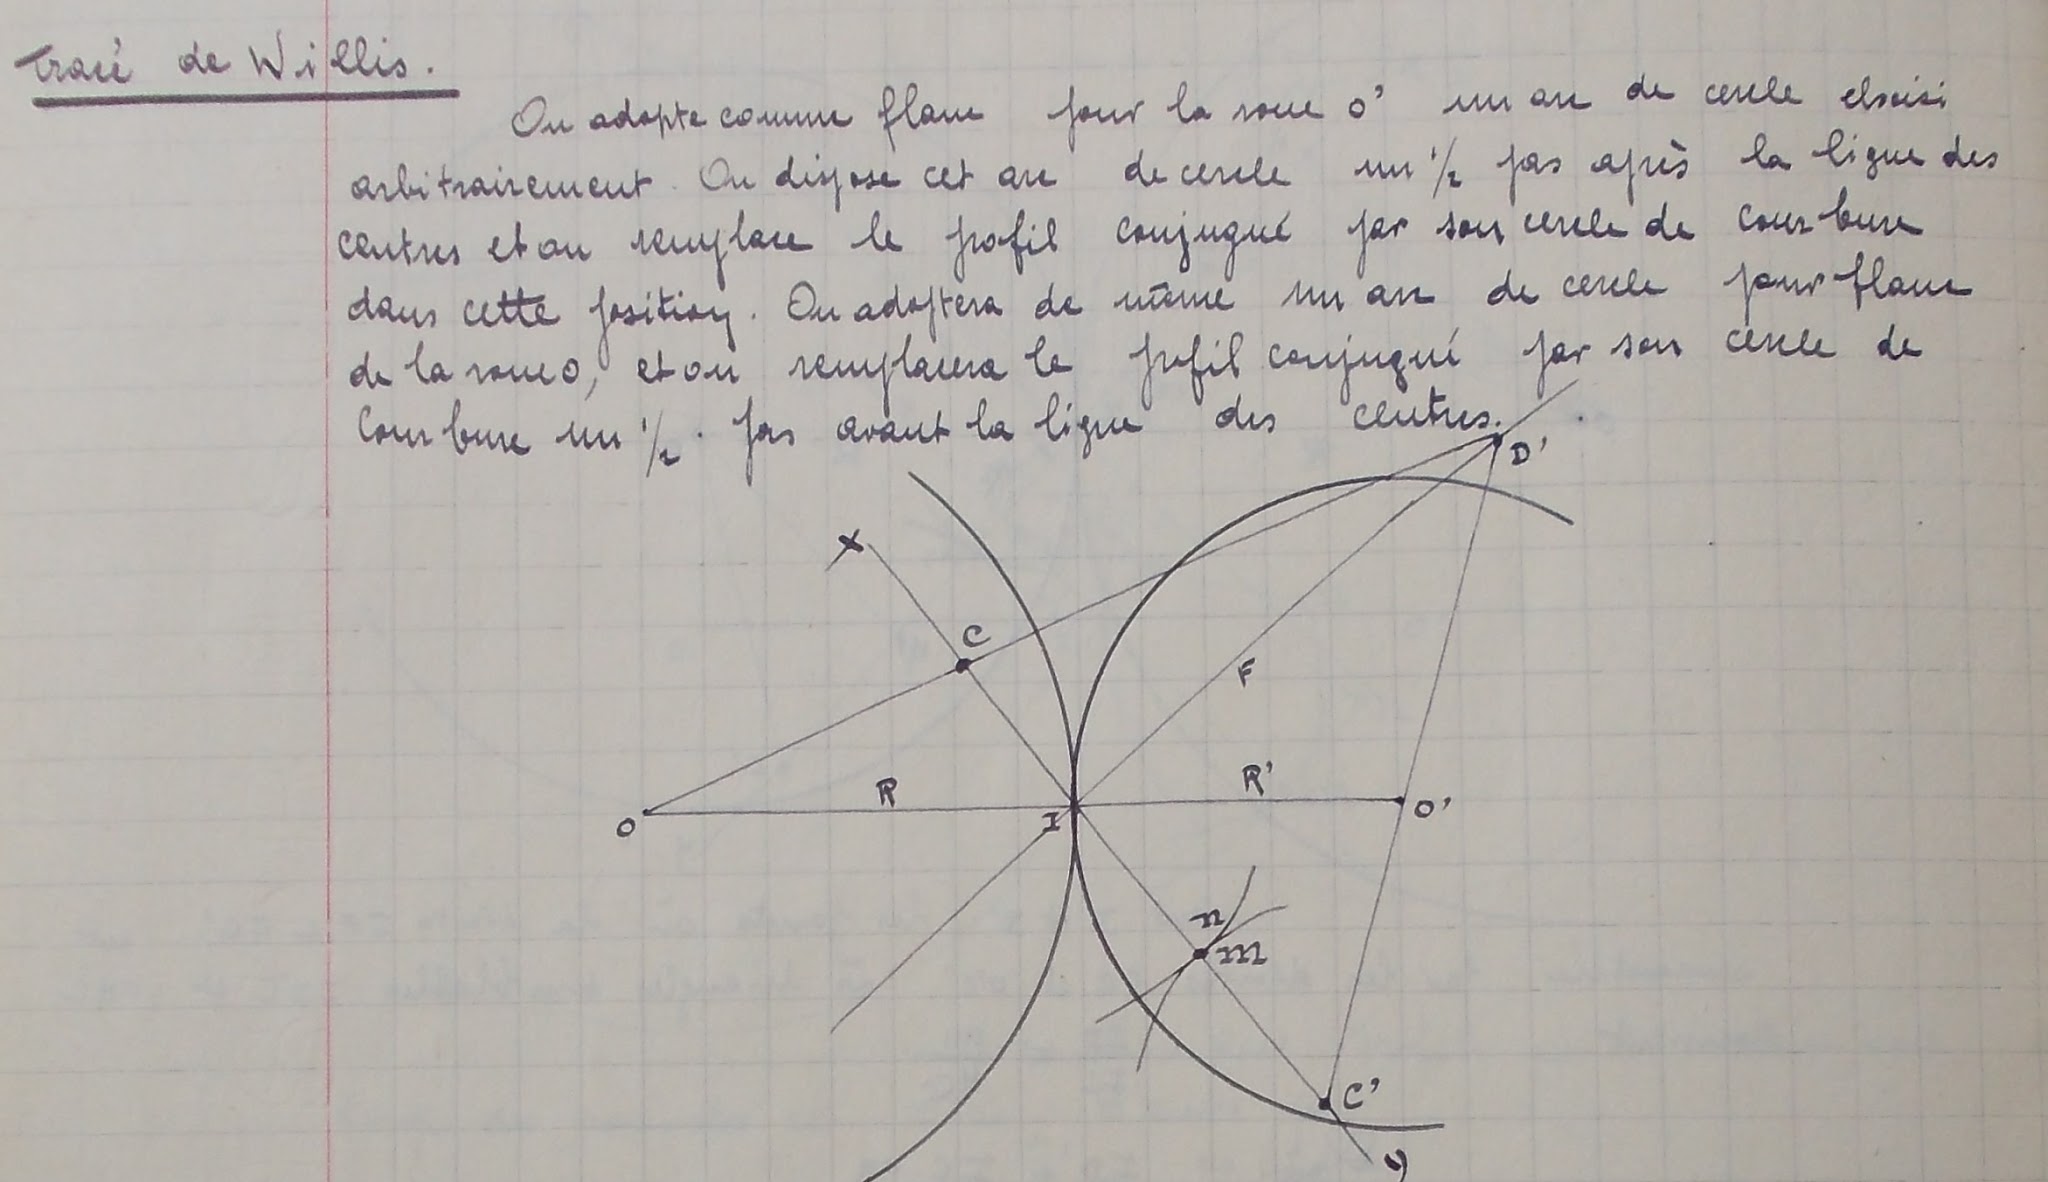 Tracé de Willis.
On adopte comme flanc pour la roue O' un arc de cercle choisi
arbitrairement. On dispose cet arc de cercle un 1/2 pas après la ligne des
centres et on remplace le profil conjugué par son cercle de courbure
dans cette position. On adoptera de même un arc de cercle pour flanc
de la roue O, et on remplacera le profil conjugué par son cercle de
courbure un 1/2 pas avant la ligne des centres.
D'
X
C
F
R
R'
O
I
O'
n
m
C'
y